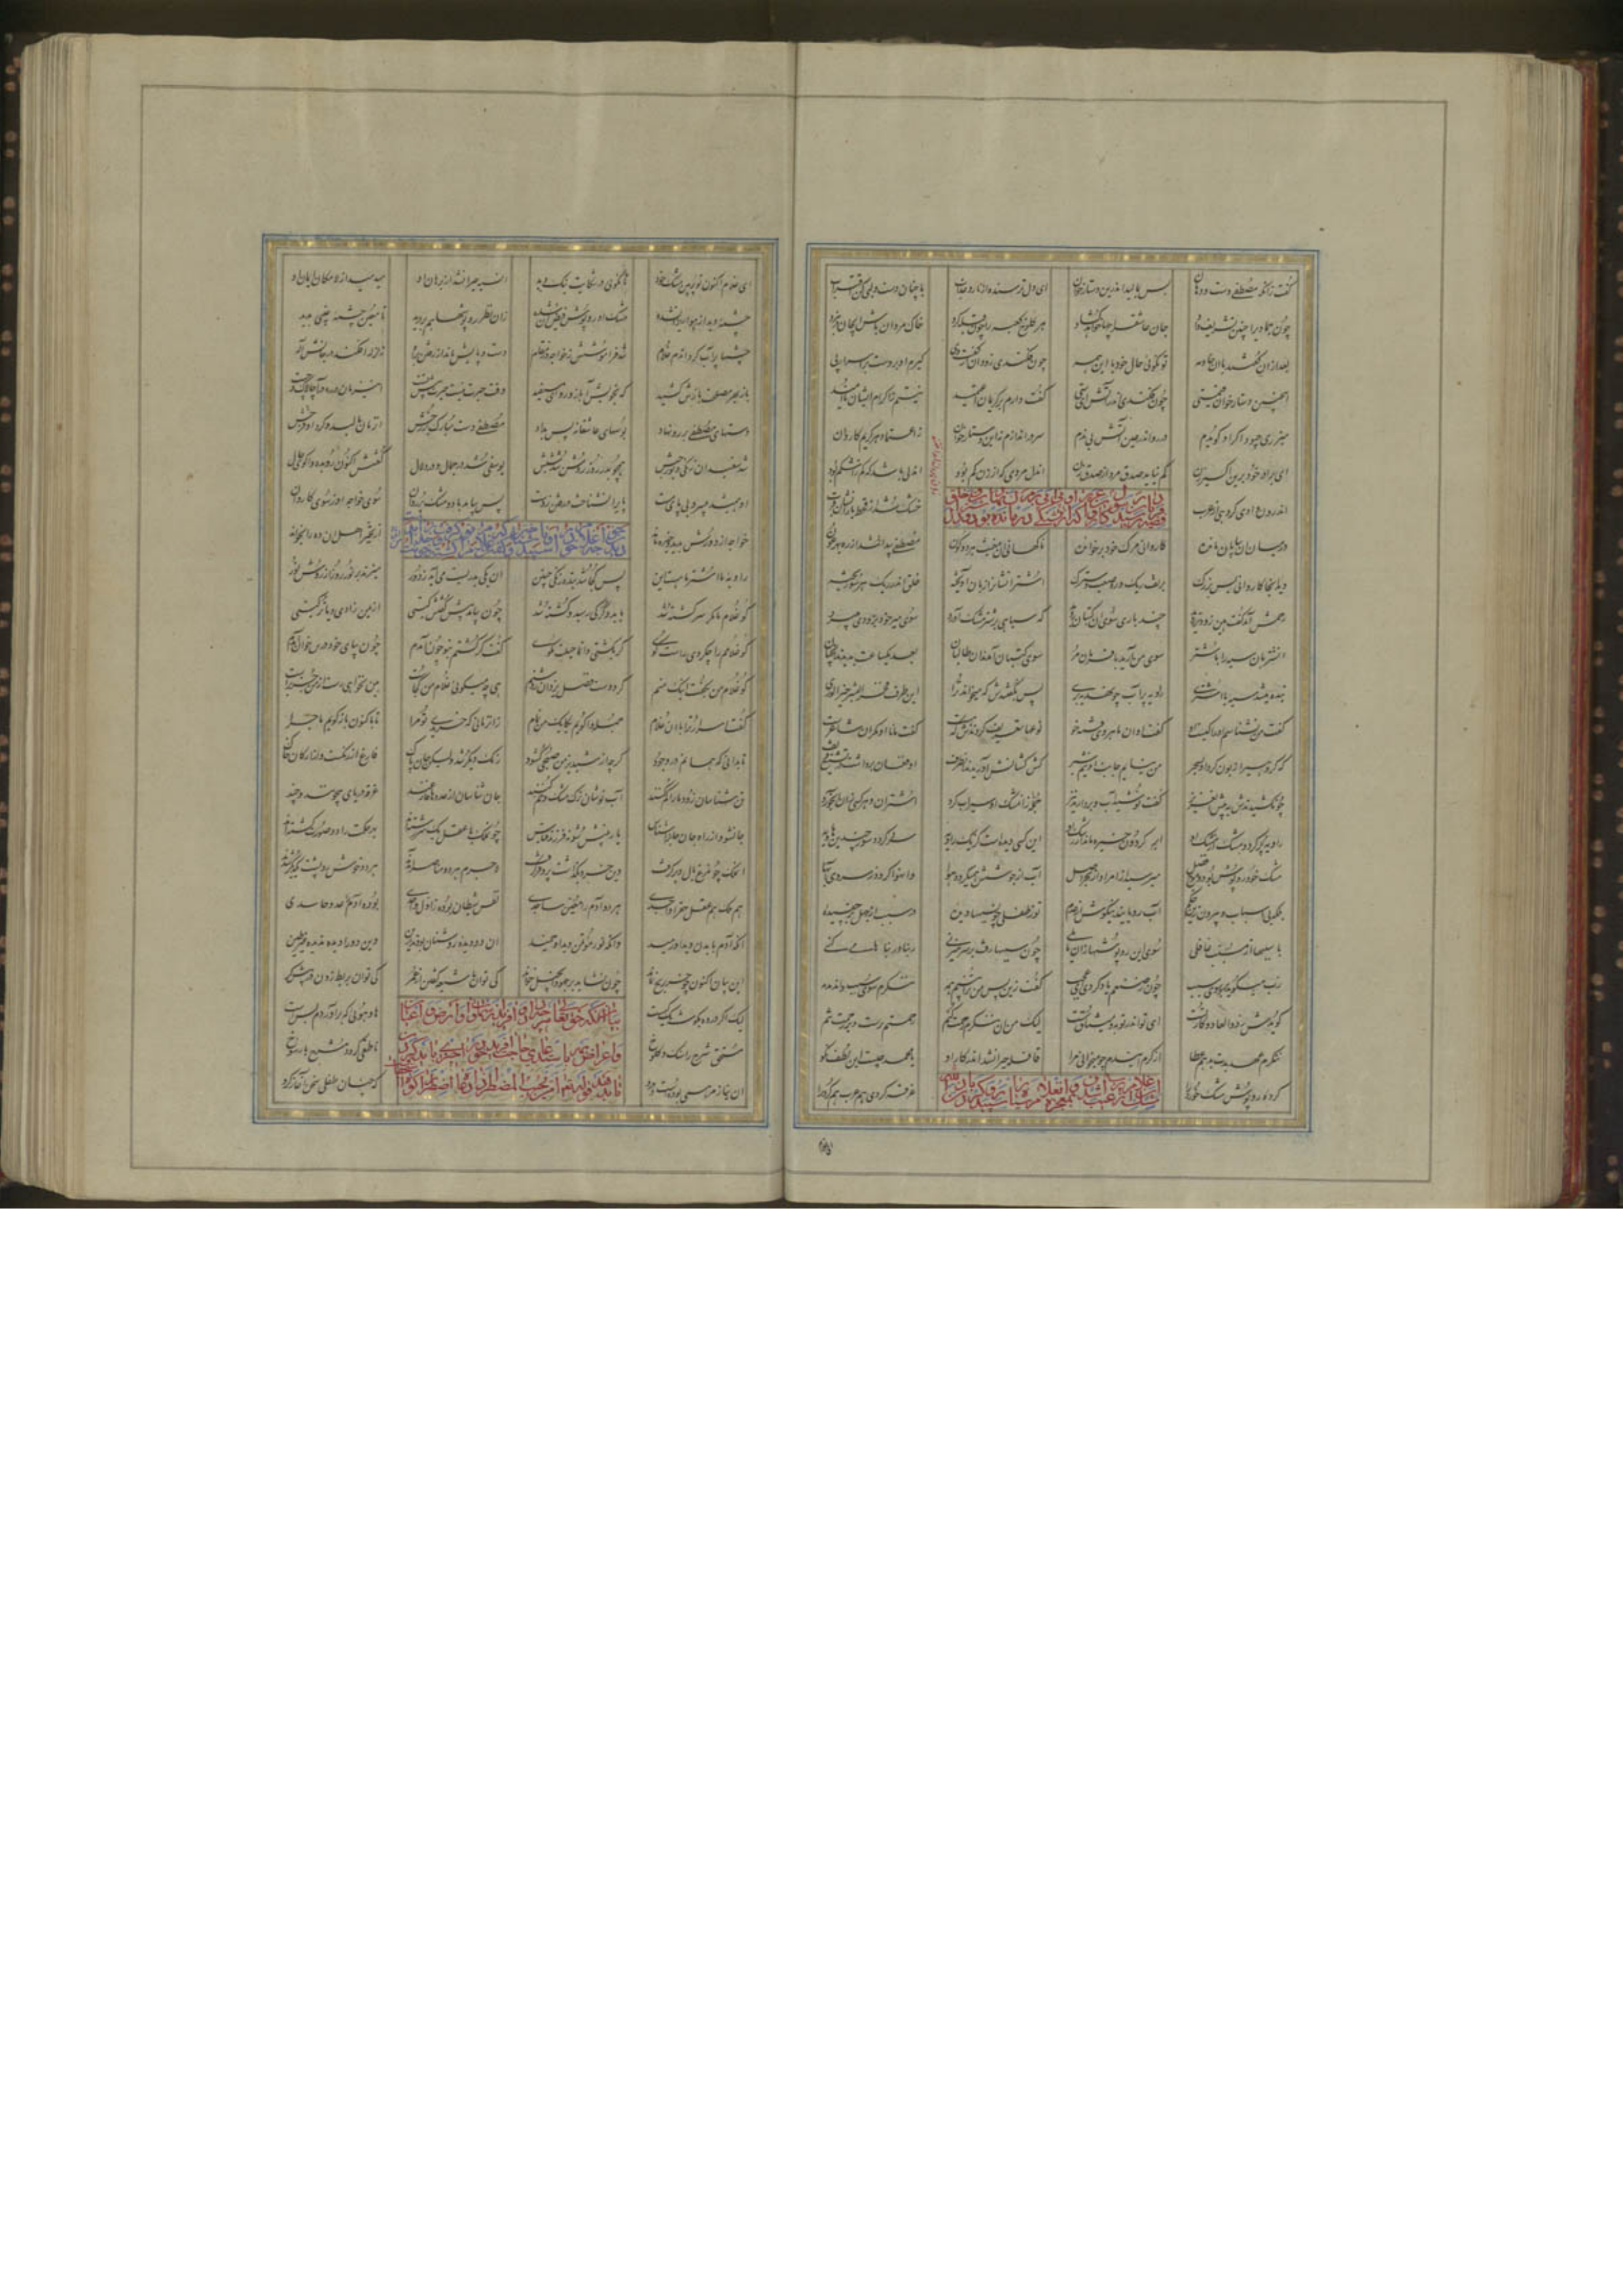 گفت زانکه مصطفی دست و دهان بس بمالید اندرین دستارخوان ای دل ترسنده از نار و عذاب با چنان دست و لبی کن اقتراب
چون جمادی را چنین تشریف داد جان عاشق را چها خواهد گشاد مر کلوخ کعبه را چون قبله کرد خاک مردان باش ای جان در نبرد
بعد ازان گفتند با آن خادمه تو نگوئی حال خود با این همه چون فکندی زود آن از گفت وی گیرم او بردست در اسرار پی
اینچنین دستارخوان قیمتی چون فکندی اندر آتش ای ستی گفت دارم بر کریمان اعتمید نیستم ز اکرام ایشان ناامید
میزری چبود اگر او گویدم در رو اندر عین آتش بی ندم سر در اندازم نه این دستارخوان ز اعتماد هر کریم کاردان
ای برادر خود برین اکسیر زن کم نباید صدق مرد از صدق زن آن دل مردی که از زن کم بود آن دلی باشد که کم ز اشکم بود
اندر آن وادی گروهی از عرب خشک شد از قحط بارانشان قرب
در میان آن بیابان مانده کاروانی مرگ خود برخوانده ناگهانی آن مغیث هر دو کون مصطفی پیدا شد از ره بهر عون
دید آنجا کاروانی بس بزرگ بر تف ریگ و ره صعب و سترگ اشترانشان را زبان آویخته خلق اندر ریگ هر سو ریخته
رحمش آمد گفت هین زودتر روید چند یاری سوی آن کثبان دوید که سیاهی بر شتر مشک آورد سوی میر خود بزودی میبرد
آن شتربان سیه را با شتر سوی من آرید با فرمان مر سوی کثبان آمدند آن طالبان بعد یکساعت بدیدند آنچنان
بنده میشد سیه با اشتری راویه پر آب چون هدیه بری پس بگفتندش که میخواند ترا این طرف فخر البشر خیر الوری
گفت من نشناسم او را کیست او گفت او آن ماه روی قند خو نوعها تعریف کردندش که هست گفت مانا او مگر آن شاعرست
که گروهی را زبون کرد او بسحر من نیایم جانب او نیم شبر کش کشانش آوریدند آن طرف او فغان برداشت در تشنیع و تف
چون کشیدندش به پیش آن عزیز گفت نوشید آب و بردارید نیز جمله را زان مشک او سیراب کرد اشتران و هر کسی زان آب خورد
راویه پر کرد و مشک از مشک او ابر گردون خیره ماند از رشک او این کسی دیدست کز یک راویه سرد گردد سوز چندین هاویه
مشک خود روپوش بود و موج فضل میرسید از امر او از بحر اصل آب از جوشش همیگردد هوا وان هوا گردد ز سردی آبها
بلکه بی اسباب و بیرون زین حکم آب رویانید تکوین از عدم تو ز طفلی چون سببها دیده در سبب از جهل بر چفسیده
با سببها از مسبب غافلی سوی این روپوشها زان مایلی چون سببها رفت بر سر میزنی ربنا و ربناها میکنی
رب میگوید برو سوی سبب چون ز صنعم یاد کردی ای عجب گفت زین پس من ترا بینم همه ننگرم سوی سبب وان دمدمه
گویدش ردوا لعادوا کار تست ای تو اندر توبه و میثاق سست لیک من آن ننگرم رحمت کنم رحمتم پرست بر رحمت تنم
ننگرم عهد بدت بدهم عطا از کرم این دم چو میخوانی مرا قافله حیران شد اندر کار او یا محمد چیست این
کرده روپوش مشک خرد را غرقه کردی هم عرب هم کرد را
ای غلام اکنون تو پر بین مشک خود تا نگوئی در شکایت نیک و بد آن سیه حیران شد از برهان او میدمید از لامکان ایمان او
چشمه دید از هوا ریزان شده مشک او روپوش فیض آن شده زان نظر روپوشها هم بر درید تا معین چشمه غیبی بدید
چشمها پر آب کرد آن دم غلام شد فراموشش ز خواجه وز مقام دست و پایش ماند از رفتن براه زلزله افکند در جانش اله
باز بهر مصلحت بازش کشید که بخویش آ باز رو ای مستفید وقت حیرت نیست حیرت پیش تست این زمان در ره درآ چالاک و چست
دستهای مصطفی بر رو نهاد بوسهای عاشقانه بس بداد مصطفی دست مبارک بر رخش آن زمان مالید و کرد او فرخش
شد سفید آن زنگی و پور حبش همچو بدر و روز روشن شد شبش یوسفی شد در جمال و در دلال گفتش اکنون رو بده واگوی حال
او همی شد بی سر و بی پای مست پای می نشناخت در رفتن ز دست پس بیامد با دو مشک پر روان سوی خواجه از سوی کاروان
خواجه از دورش بدید و خیره ماند از تحیر اهل آن ده را بخواند
راویه ما اشتر ما هست این پس کجا شد بنده زنگی جبین آن یکی بدریست می آید ز دور میزند بر نور روز از روش نور
کو غلام ما مگر سرگشته شد یا بدو گرگی رسید و کشته شد چون بیامد پیش گفتش کیستی از یمن زادی و یا ترکیستی
کو غلامم را چه کردی راست گو گر بکشتی وانما حیلت مجو گفت اگر کشتم بتو چون آمدم چون بپای خود درین خون آمدم
کو غلام من بگفت اینک منم کرد دست فضل یزدان روشنم هی چه میگوئی غلام من کجاست هین نخواهی رست از من جز براست
گفت اسرار ترا با آن غلام جمله واگویم یکایک من تمام زان زمانی که خریدی تو مرا تا باکنون باز گویم ماجرا
تا بدانی که همانم در وجود گرچه از شبدیز من صبحی گشود رنگ دیگر شد ولیکن جان پاک فارغ از رنگست و از ارکان خاک
تن شناسان زود ما را گم کنند آب نوشان ترک مشک و خم کنند جان شناسان از عددها فارغند غرقه دریای بیچونند و چند
جان شو و از راه جان جان را شناس یار بینش شو نه فرزند قیاس چون ملک با عقل یک سررشته اند بهر حکمت را دو صورت گشته اند
آن ملک چون مرغ بال و پر گرفت وین خرد بگذاشت پر و فر گرفت لاجرم هر دو مناصر آمدند هر دو خوش رو پشت یکدیگر شدند
هم ملک هم عقل حق را واجدی هر دو آدم را معین و ساجدی نفس و شیطان بوده ز اول واحدی بوده آدم را عدو و حاسدی
آنکه آدم را بدن دید او رمید وانکه نور مؤتمن دید او خمید آن دو دیده روشنان بودند ازین وین دو را دیده ندیده غیر طین
این بیان اکنون چو خر بر یخ بماند چون نشاید بر جهود انجیل خواند کی توان با شیعه گفتن از عمر کی توان بربط زدن در پیش کر
لیک اگر در ده بگوشه یک کسست های و هوئی که برآوردم بسست
مستحق شرح را سنگ و کلوخ ناطقی گردد مشرح با رسوخ
آن نیاز مریمی بودست و درد که چنان طفلی سخن آغاز کرد